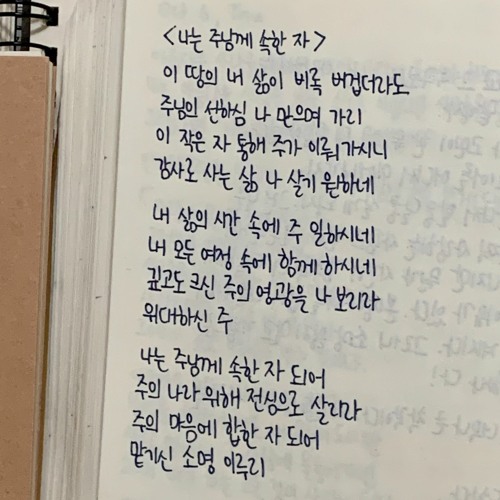 <나는 주님께 속한 자>
이 땅의 내 삶이 비록 버겁더라도
주님의 선하심 나 믿으며 가리
이 작은 자 통해 주가 이뤄가시니
감사로 사는 삶 나 살기 원하네
내 삶의 시간 속에 주 일하시네
내 모든 여정 속에 함께 하시네
깊고도 크신 주의 영광을 나 보리라
위대하신 주
나는 주님께 속한 자 되어
주의 나라 위해 전심으로 살리라
주의 마음에 합한 자 되어
맡기신 소명 이루리